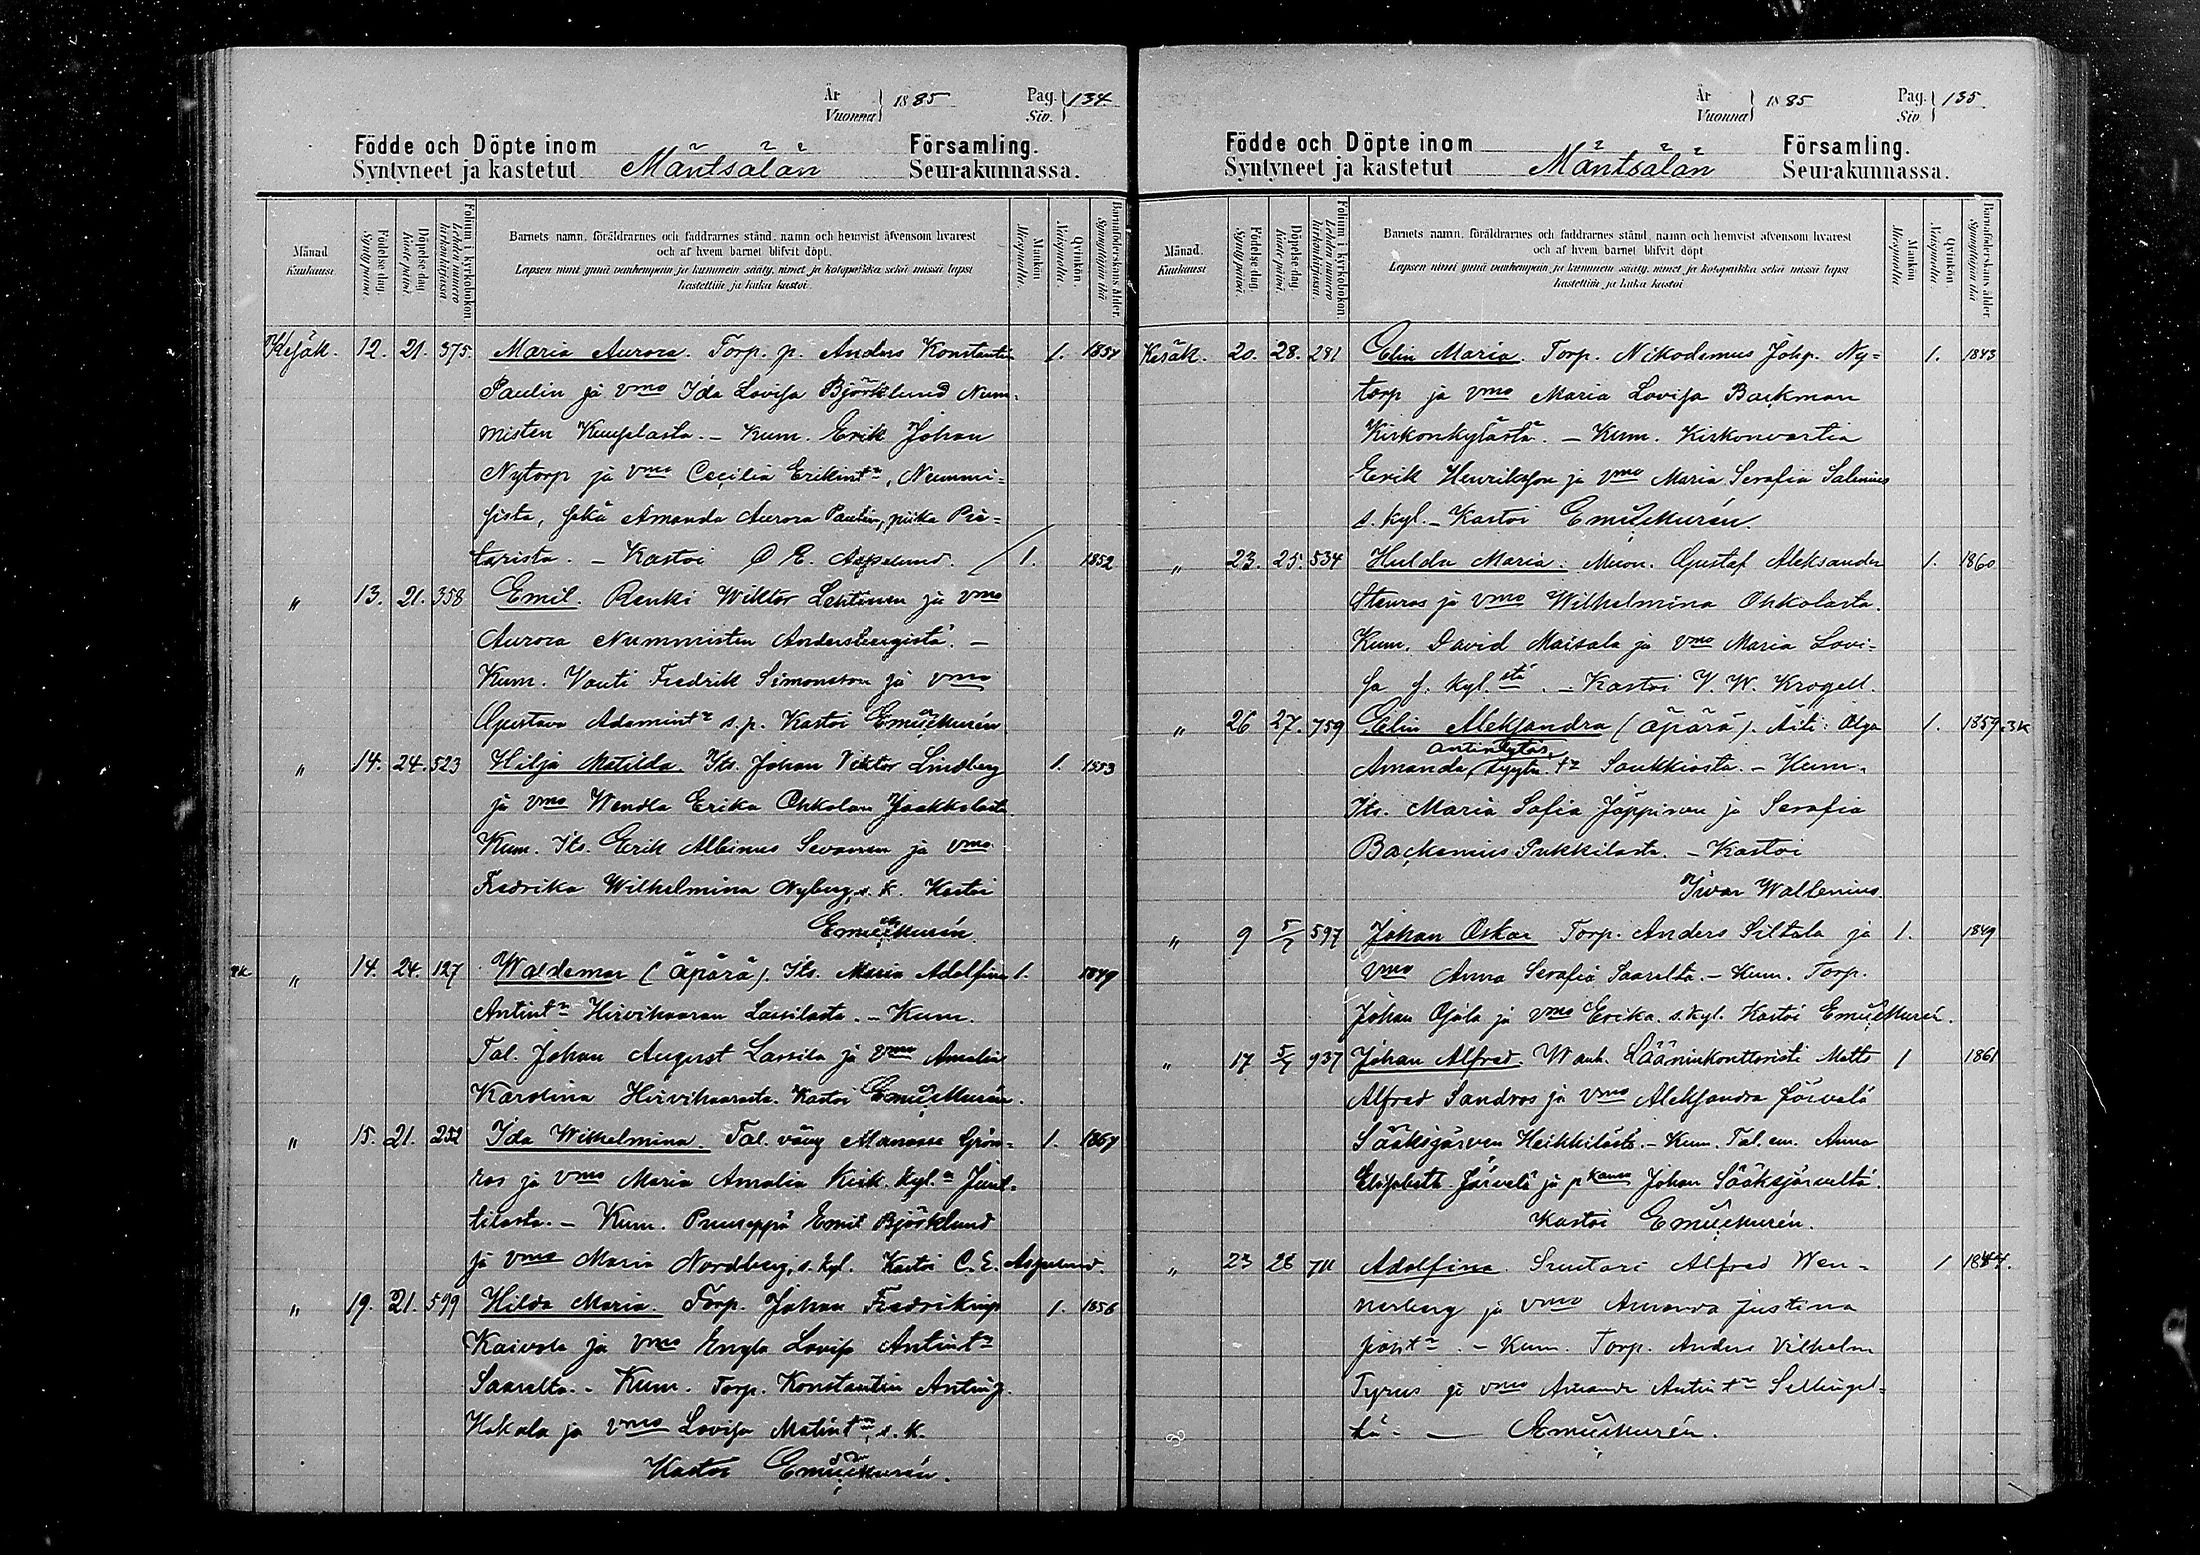 År
Vuonna } 1885 Pag.
Siv. } 134
Födde och Döpte inom
Syntyneet ja kastetut Mäntsälän Församling.
Seurakunnassa.
Månad
Kuukausi
Födelse dag
Synty päivä
Döpelse dag
Kaste päivä
Folium i kyrkoboken.
Lehden numero kirkonkirjassa
Barnets namn, föräldrarnes och faddrarnes stånd, namn och hemvist äfvensom hvarest
och af hvem barnet blifvit döpt.
Lapsen nimi ynnä vanhempain ja kummein sääty, nimet ja kotopaikka sekä missä lapsi
kastettiin ja kuka kastoi.
Mankön
Miespuolta
Qvinkön
Naispuolta
Barnaföderskans ålder
Synnyttäjän ikä
Kesäk. 12. 21. 375. Maria Aurora. Torp. p. Anders Konstantin 1. 1854
Paulin ja vmo Ida Lovisa Björklund Num-
misten Kuuselasta. – Kum. Erik Johan
Nytorp ja vmo Cecilia Erikintr, Nummi-
sista, sekä Amanda Aurora Paulin, piika Pie-
tarista. – Kastoi C E. Aspelund. / 1. 1852
" 13. 21. 358 Emil. Renki Wiktor Lehtinen ja vmo
Aurora Nummisten Andersbergistä. –
Kum. Vouti Fredrik Simonsson ja vmo
Gustava Adamintr s. p. Kastoi Emil Murén.
" 14. 24. 523 Hilja Matilda. Its. Johan Viktor Lindberg 1. 1853
ja vmo Wendla Erika Ohkolan Jaakkolasta.
Kum. Its. Erik Albinus Sevanen ja vmo
Fredrika Wilhelmina Nyberg, s. k. Kastoi
Emil Murén.
" 14. 24. 127 Waldemar (äpärä). Its. Maria Adolfina 1. 1849
Antintr Hirvihaaran Lassilasta. – Kum.
Tal. Johan August Lassila ja vmo Amalia
Karolina Hirvihaarasta. Kastoi Emil Murén.
" 15. 21. 252 Ida Wilhelmina. Tal. vävy Manasse Grön- 1. 1864
ros ja vmo Maria Amalia Kirk. kyl.n Junt-
tilasta. – Kum. Puuseppä Emil Björklund
ja vmo Maria Nordberg, s. kyl. Kastoi C. E. Aspelund.
" 19. 21. 599 Hilda Maria. Torp. Johan Fredrikinp. 1. 1856
Kaivola ja vmo Engla Lovisa Antintr
Saarelta. – Kum. Torp. Konstantin Antinp.
Kokala ja vmo Lovisa Matintr, s. k.
Kastoi Emil Murén.
År
Vuonna } 1885 Pag.
Siv. } 135
Födde och Döpte inom
Syntyneet ja kastetut Mäntsälän Församling.
Seurakunnassa.
Månad.
Kuukausi
Födelse dag
Synty päivä.
Döpelse dag
Kaste päivä.
Folium i kyrkoboken.
Lehden numero kirkonkirjassa.
Barnets namn, föräldrarnes och faddrarnes stånd, namn och hemvist äfvensom hvarest
och af hvem barnet blifvit döpt
Lapsen nimi ynnä vanhempain ja kummein sääty, nimet ja kotopaikka sekä missä lapsi
kastettiin ja kuka kastoi
Mankön
Miespuolta
Qvinkön
Naispuolta
Barnaföderskans ålder
Synnyttäjän ikä
Kesäk. 20. 28. 281 Elin Maria. Torp. Nikodemus Johp. Ny- 1. 1843
torp ja vmo Maria Lovisa Backman
Kirkonkylästä. – Kum. Kirkonvartia
Erik Henriksson ja vmo Maria Serafia Salenius
s. kyl. – Kastoi Emil Murén.
" 23. 25. 534 Hulda Maria. Muon. Gustaf Aleksander 1. 1860
Stenros ja vmo Wilhelmina Ohkolasta.
Kum. David Maisala ja vmo Maria Lovi-
sa s. kyl.stä. – Kastoi V. W. Krogell.
" 26 27. 759 Elin Aleksandra (äpärä). Äiti: Olga 1. 1859. 3K
Amanda, tr Soukkiosta. – Kum.
Its. Maria Sofia Jäppinen ja Serafia
Backenius Pukkilasta. – Kastoi
Ivar Wallenius.
" 9 5/7 597 Johan Oskar Torp. Anders Siltala ja 1. 1849
vmo Anna Serafia Saarelta. – Kum. Torp.
Johan Ojala ja vmo Erika. s. kyl. Kastoi Emil Murén.
" 17 5/7 937 Johan Alfred. Wanh. Lääninkonttoristi Matts 1 1861
Alfred Sandros ja vmo Aleksandra Järvelä
Sääksjärven Heikkilästä. – Kum. Tal. em. Anna
Elisabeth Järvelä ja pkansa Johan Sääksjärveltä.
Kastoi Emil Murén.
" 23 28 711 Adolfina. Suutari Alfred Wen- 1 1844.
nerberg ja vmo Amanda Justina
tr. – Kum. Torp. Anders Vilhelm
Tyrus ja vmo Amanda Antintr Sellingel-
tä. – Emil Murén.